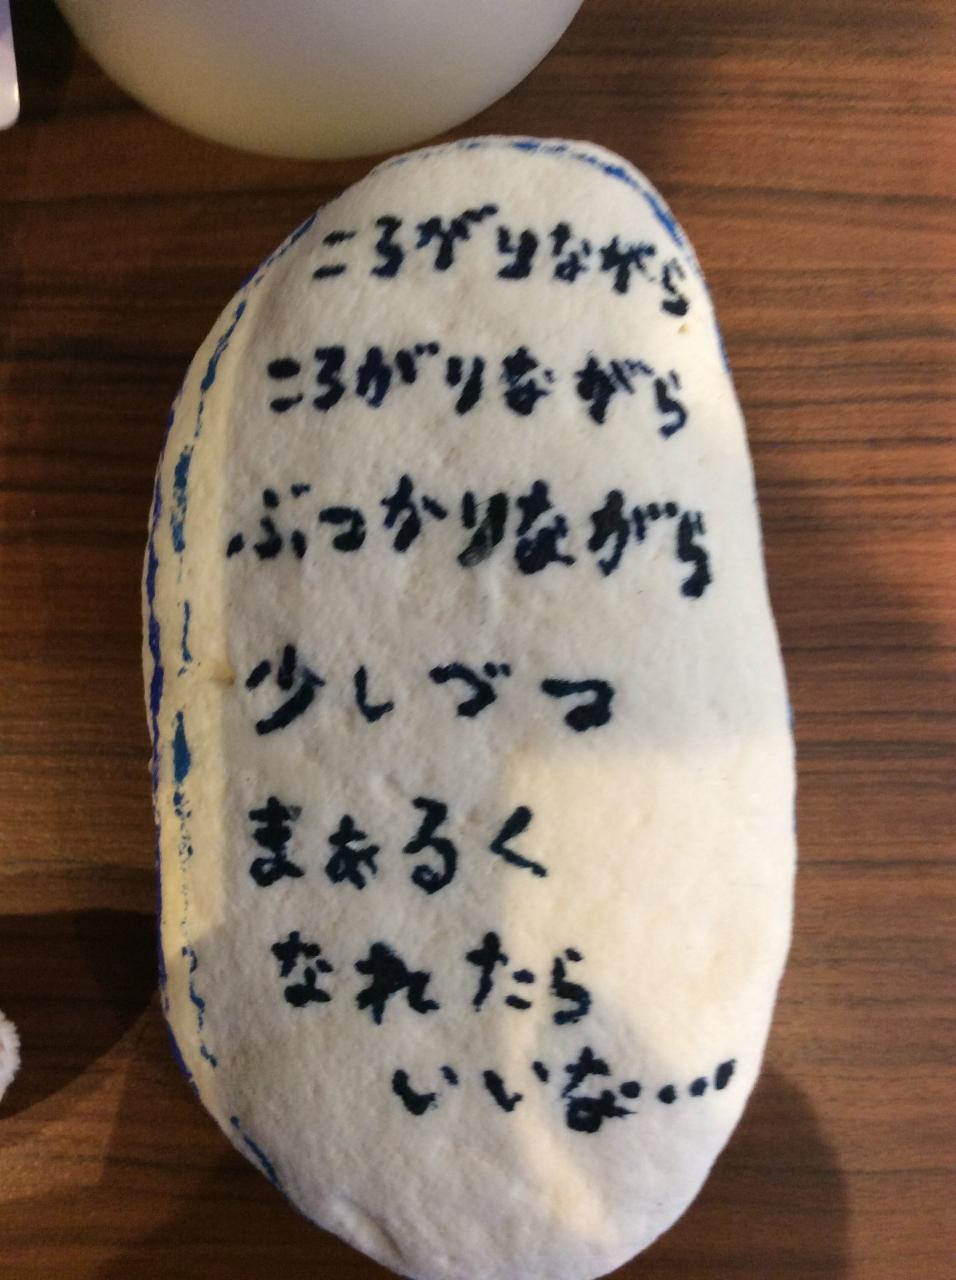 ころがりながら
ころがりながら
ぶつかりながら
少しづつ
まぁるく
なれたら
いいな…